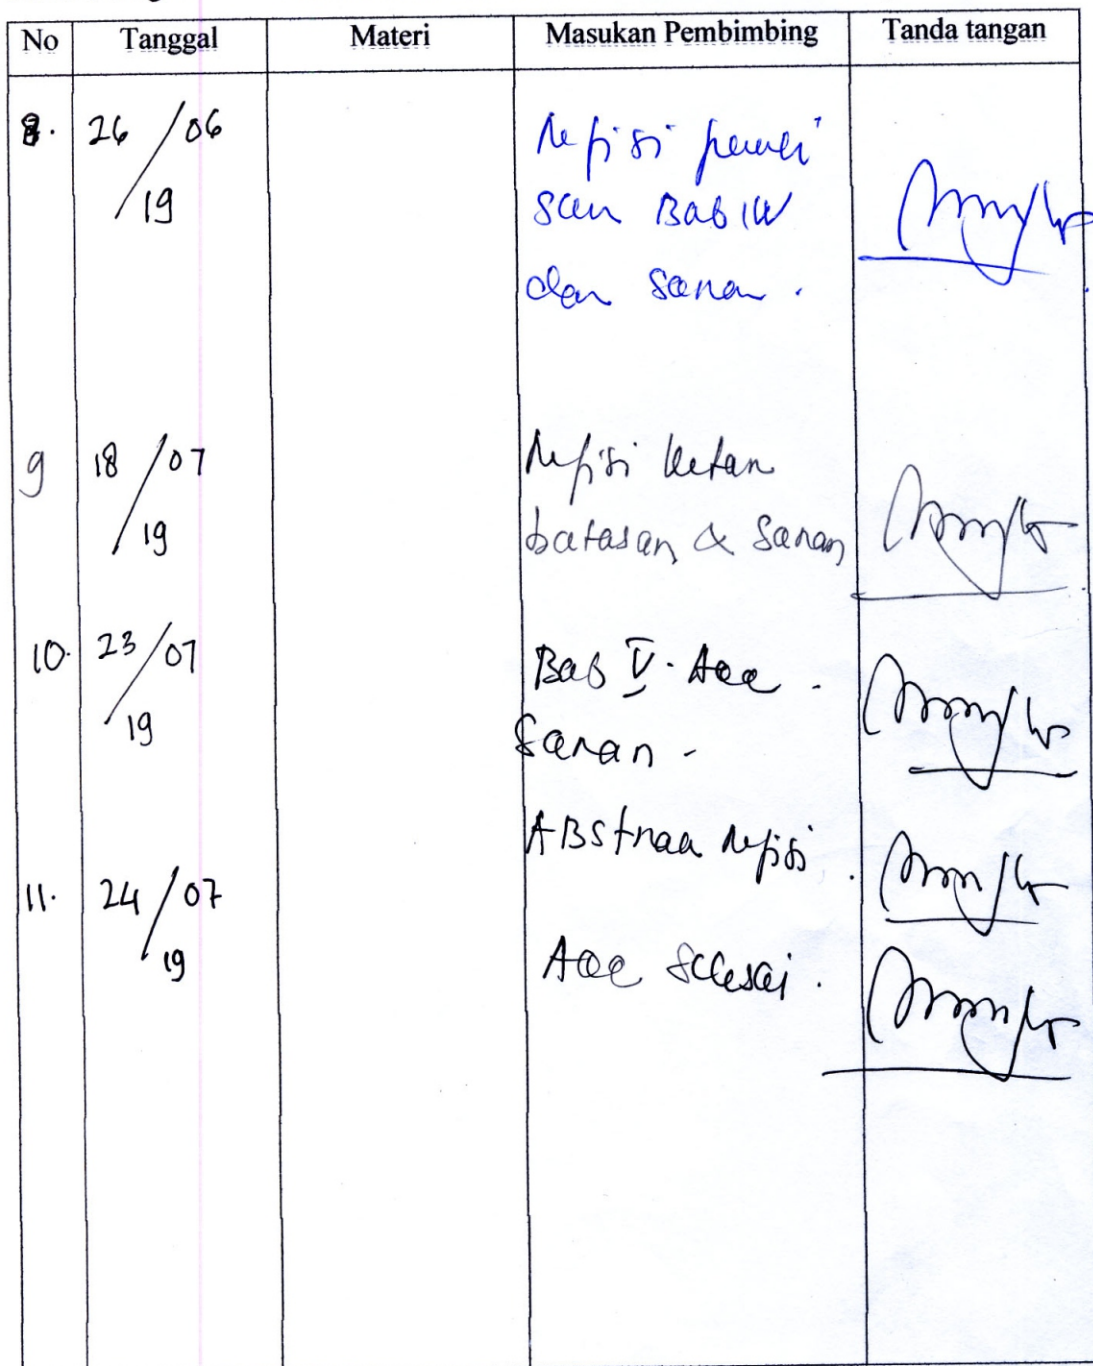 No Tanggal Materi Masukan Pembimbing Tanda tangan
8. 26/06/19 Refisi penuli
san Bab IV
dan Saran.
9 18/07/19 Refisi keter
batasan & Saran
10. 23/07/19 Bab V. Acc.
Saran -
ABStrak refisi.
11. 24/07/19 Acc Selesai.